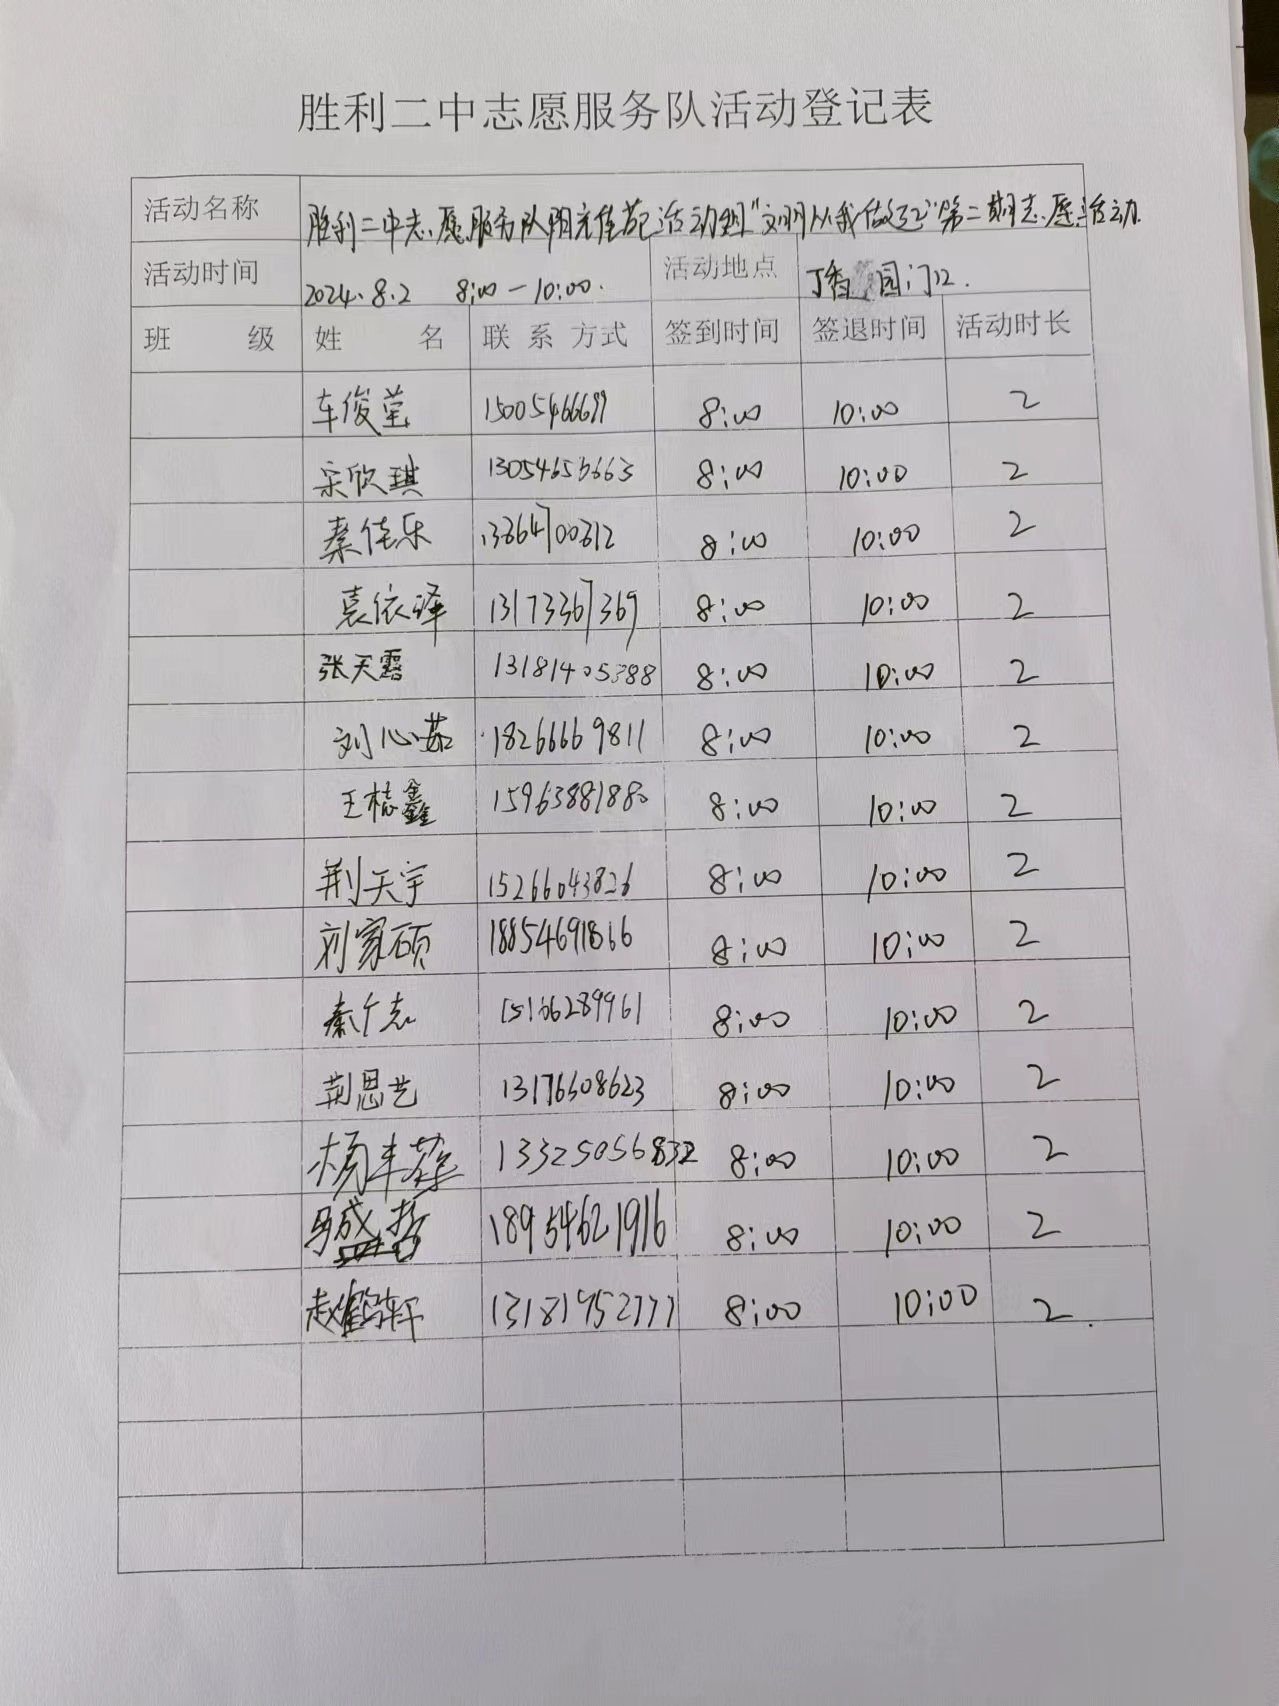 胜利二中志愿服务队活动登记表
活动名称 胜利二中志愿服务队阳光佳苑活动组"文明从我做起"第二期志愿活动.
活动时间 2024.8.2 8:00-10:00. 活动地点 丁香园门口.
班 级 姓 名 联系方式 签到时间 签退时间 活动时长
车俊莹 15005466699 8:00 10:00 2
宋欣琪 13054653663 8:00 10:00 2
秦佳乐 13864700312 8:00 10:00 2
袁依泽 13173367369 8:00 10:00 2
张天露 13181405388 8:00 10:00 2
刘心茹 18266669811 8:00 10:00 2
王梽鑫 15963881880 8:00 10:00 2
荆天宇 15266043826 8:00 10:00 2
刘家硕 18854691866 8:00 10:00 2
秦个志 15106289961 8:00 10:00 2
荆思艺 13176608623 8:00 10:00 2
杨丰 13325056832 8:00 10:00 2
马盛哲 18954621916 8:00 10:00 2
赵鹤轩 13181952777 8:00 10:00 2.